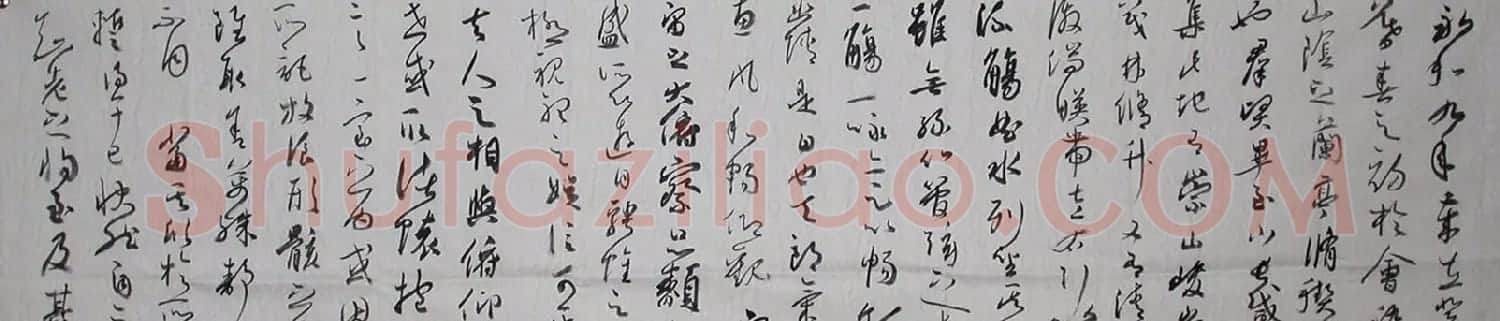 永和九年歲在癸
暮春之初於會稽
山陰之蘭亭脩禊
也羣賢畢至少長咸
集此地有崇山峻
茂林脩竹又有清
激湍暎帶左右引
流觴曲水列坐其
雖無絲竹管絃之
一觴一詠亦足以暢
幽情是日也天朗氣
惠風和暢仰觀
宙之大俯察品類
盛所以遊目騁懷
極視聽之娛信可
夫人之相與俯仰
世或取諸懷抱
言一室之內或因
所託放浪形骸之
雖取舍萬殊靜
不同當其欣於所
暫得於己快然自
知老之將至及其
Shufaziliao.COM